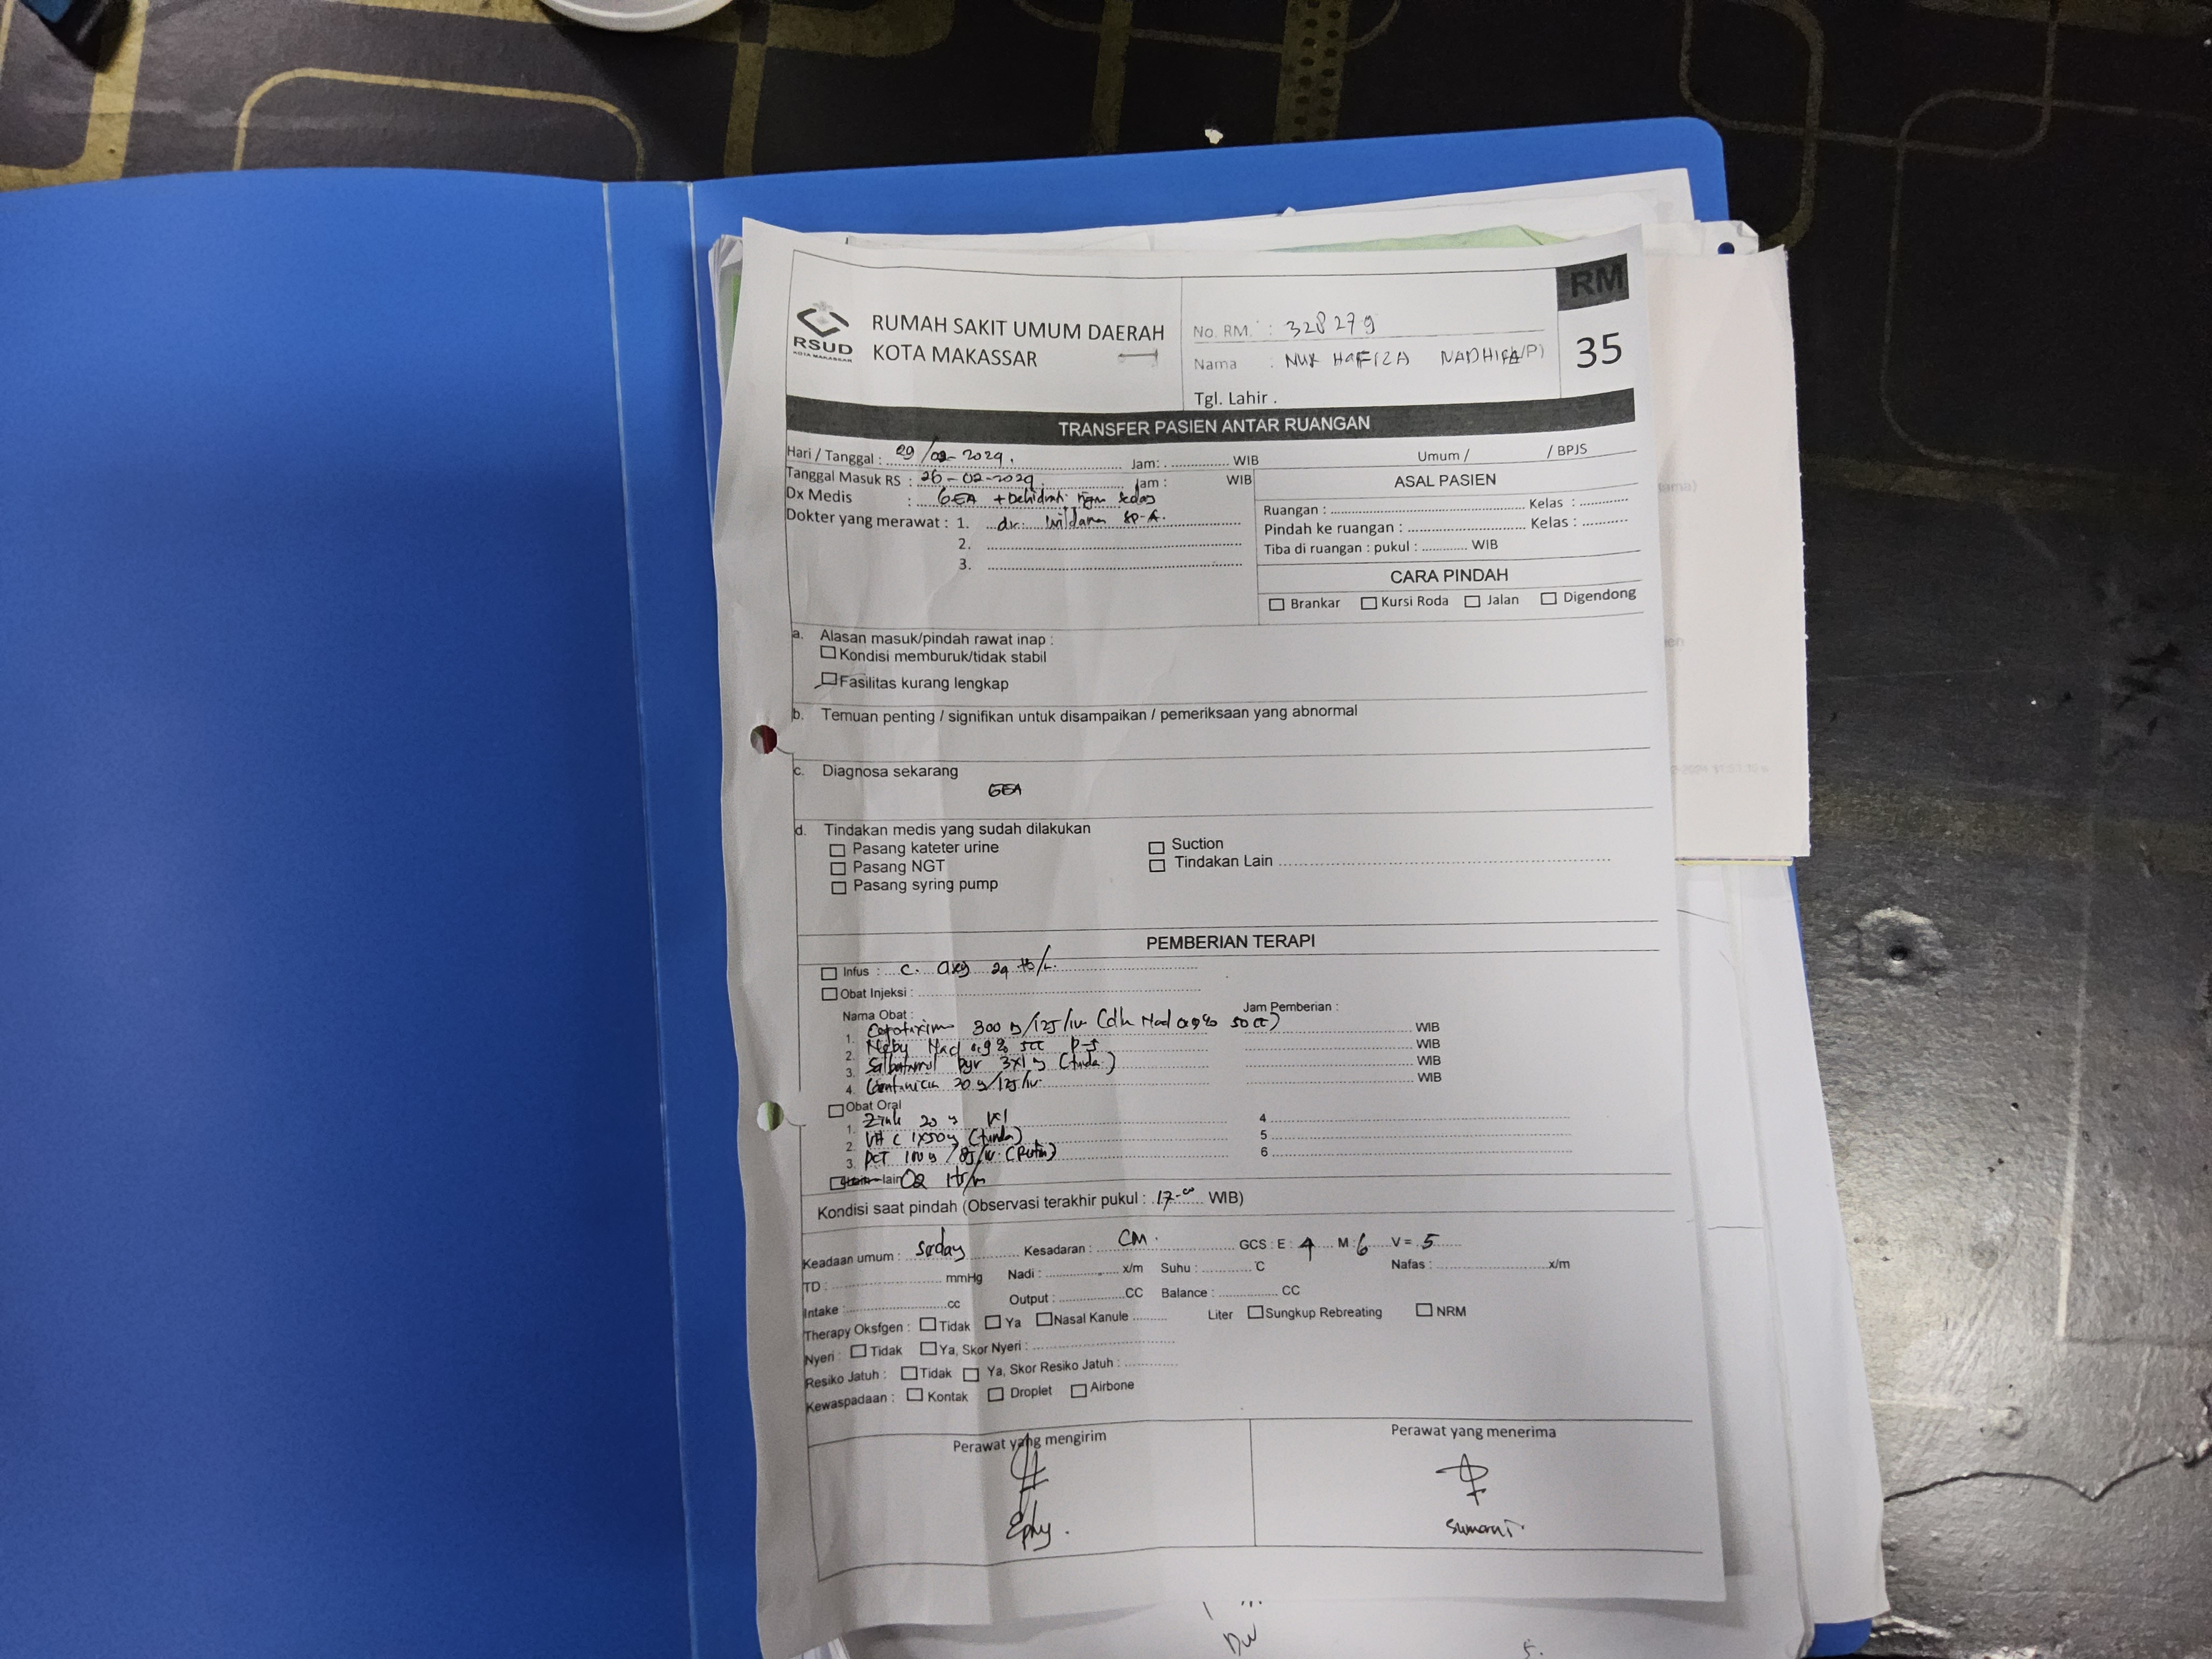 RM
35
RSUD
KOTA MAKASSAR
RUMAH SAKIT UMUM DAERAH
KOTA MAKASSAR
No. RM. : 328279
Nama : NUR HAFIZA NADHIFA (L/P)
Tgl. Lahir .
TRANSFER PASIEN ANTAR RUANGAN
Hari / Tanggal : 29/02-2024. Jam: WIB
Umum / / BPJS
Tanggal Masuk RS : 26-02-2024 Jam : WIB
Dx Medis : GEA + Dehidrasi sedang
Dokter yang merawat : 1. dr. Wildana SP-A.
2.
3.
ASAL PASIEN
Ruangan : Kelas :
Pindah ke ruangan : Kelas :
Tiba di ruangan : pukul : WIB
CARA PINDAH
Brankar Kursi Roda Jalan Digendong
a. Alasan masuk/pindah rawat inap :
Kondisi memburuk/tidak stabil
Fasilitas kurang lengkap
b. Temuan penting / signifikan untuk disampaikan / pemeriksaan yang abnormal
c. Diagnosa sekarang
GEA
d. Tindakan medis yang sudah dilakukan
Pasang kateter urine
Pasang NGT
Pasang syring pump
Suction
Tindakan Lain
PEMBERIAN TERAPI
Infus : C.
Obat Injeksi :
Nama Obat : Jam Pemberian :
1. 300 /12J/iv (dlm Nacl 0,9% 50 cc) WIB
2. Neby Nacl 0,9% 5cc WIB
3. Salbutamol pyr 3x1 (tunda) WIB
4. 20 /12J/iv WIB
Obat Oral
1. Zink 20 4
2. Vit C 1x50 (tunda) 5
3. PCT 100 /8J/iv (Rutin) 6
lain O2
Kondisi saat pindah (Observasi terakhir pukul : 17-00 WIB)
Keadaan umum : sedang Kesadaran : CM. GCS : E : 4 M : 6 V = 5
TD : mmHg Nadi : x/m Suhu : C Nafas : x/m
Intake : cc Output : CC Balance : CC
Therapy Oksfgen : Tidak Ya Nasal Kanule Liter Sungkup Rebreating NRM
Nyeri : Tidak Ya, Skor Nyeri :
Resiko Jatuh : Tidak Ya, Skor Resiko Jatuh :
Kewaspadaan : Kontak Droplet Airbone
Perawat yang mengirim
Perawat yang menerima
Ephy.